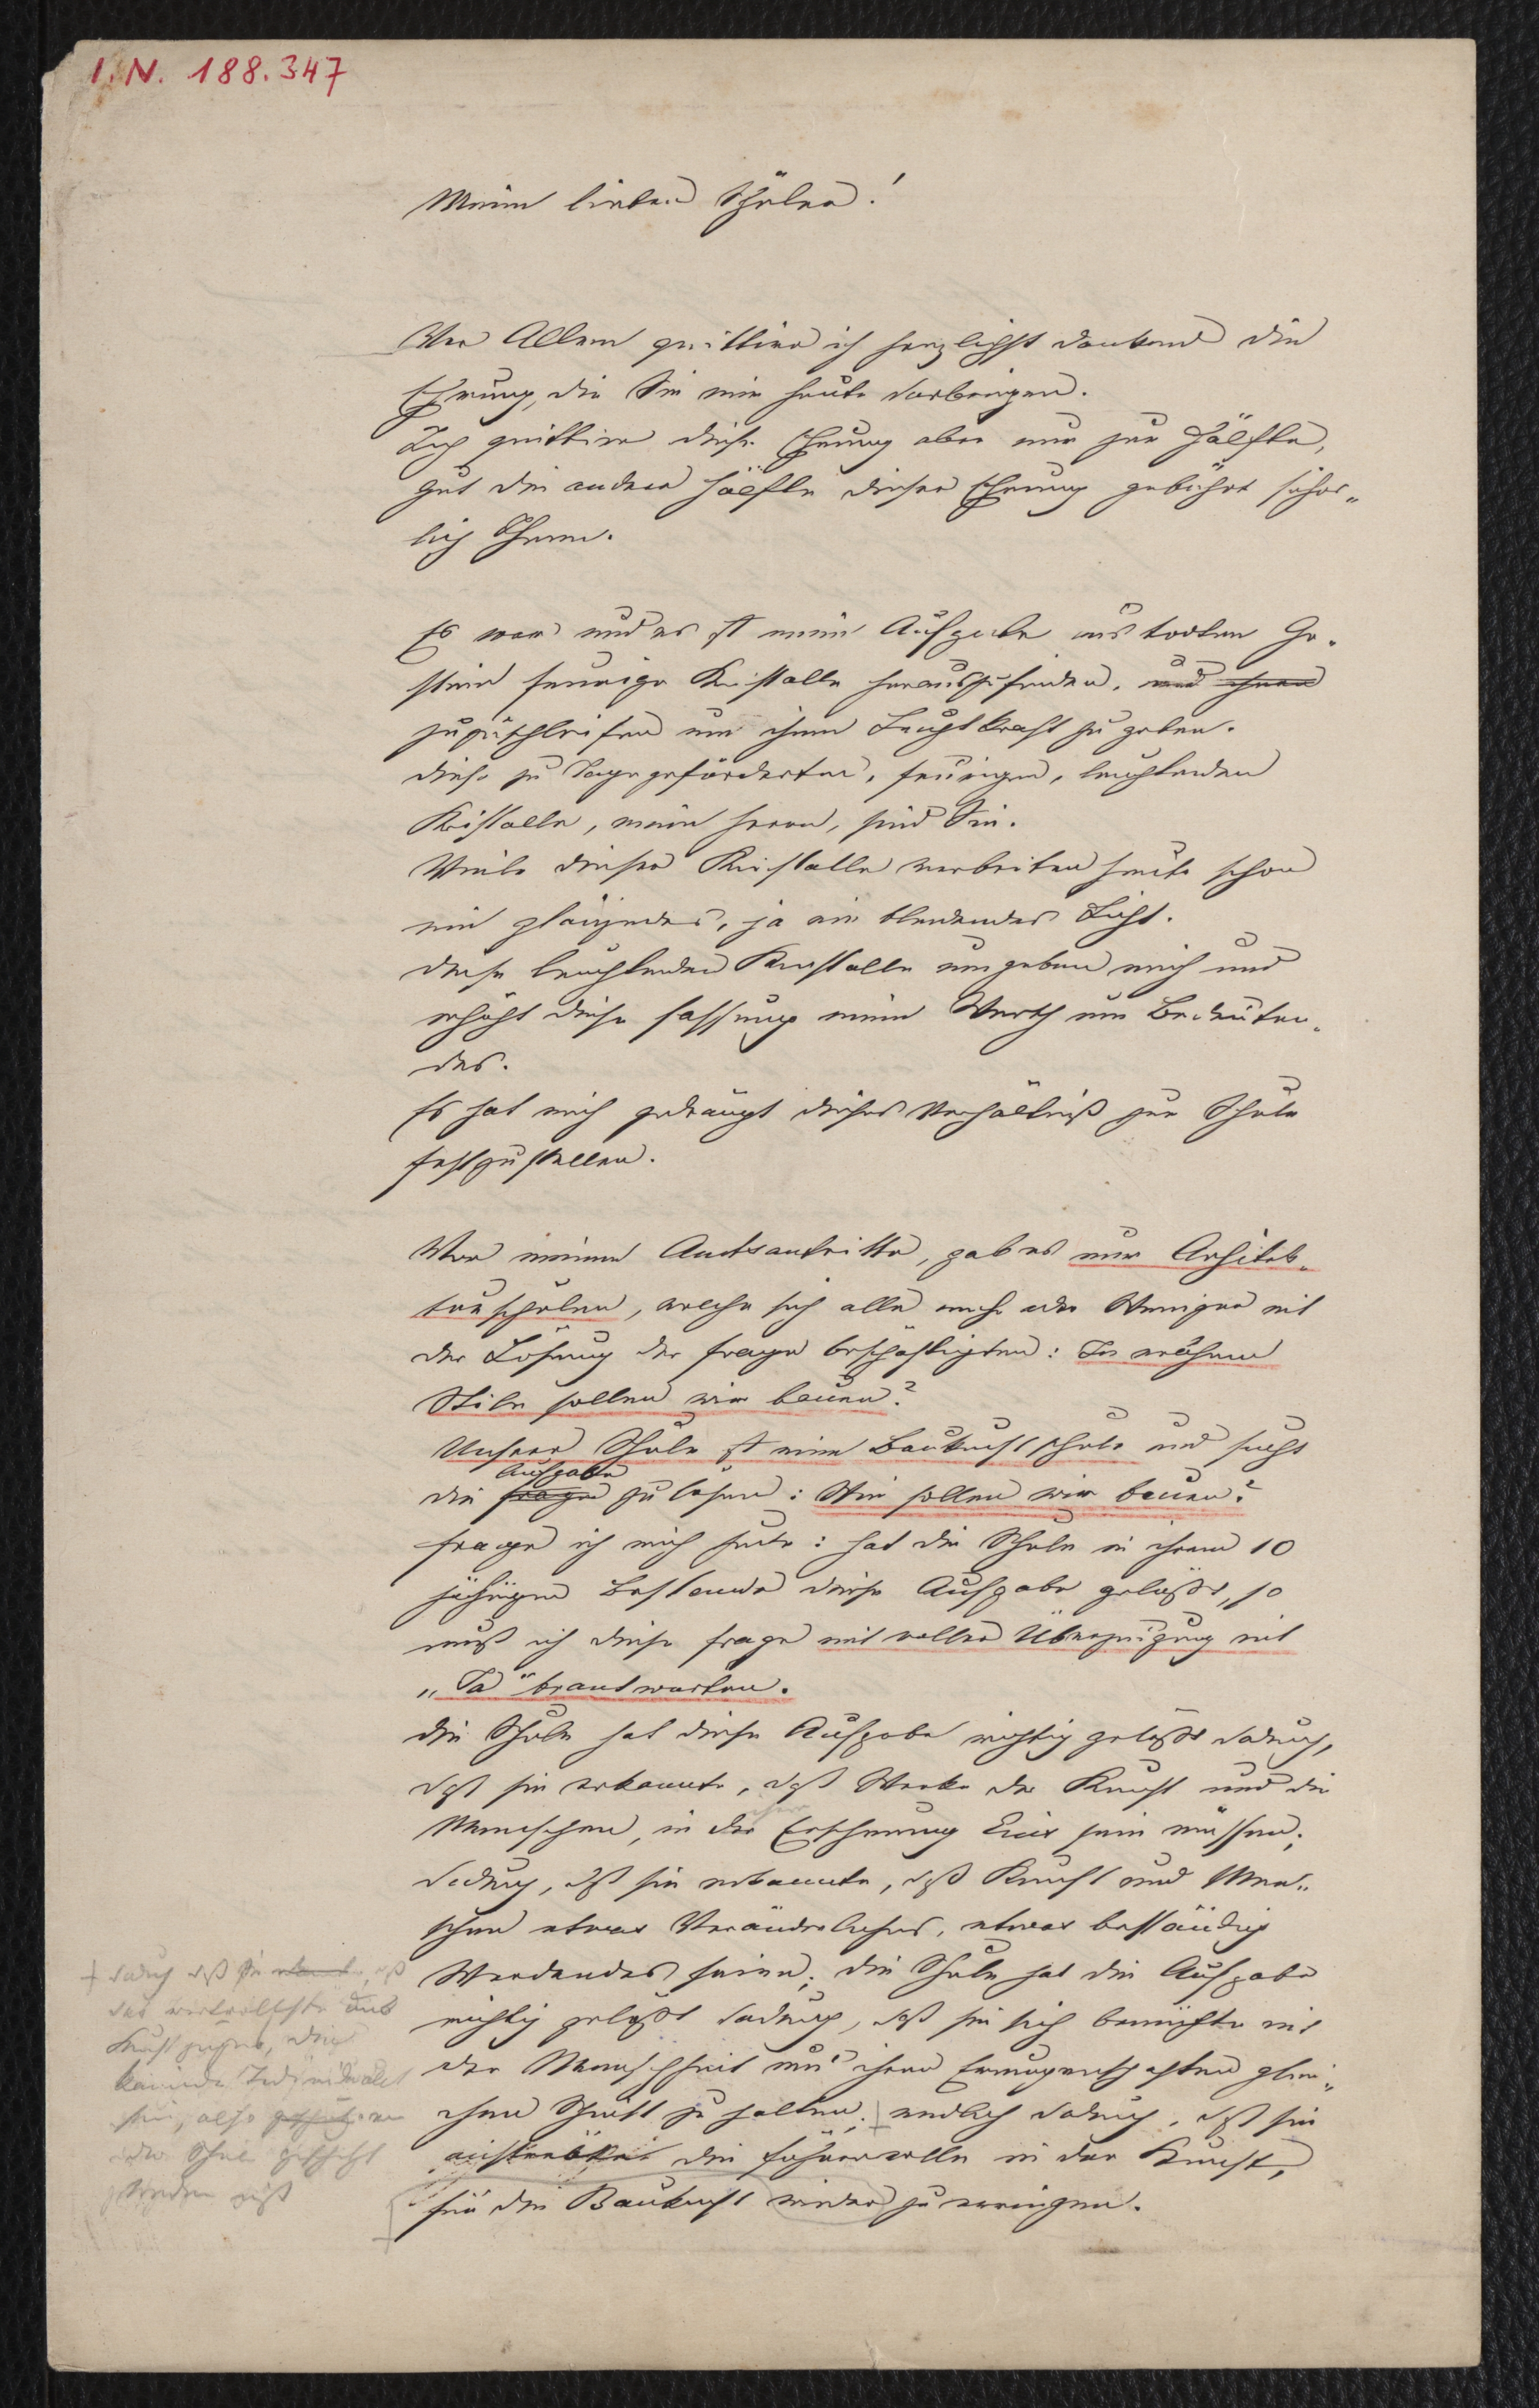 I. N. 188.347
Meine lieben Schüler!
Vor Allem quittire ich herzlichst dankend die
Ehrung, die Sie mir heute darbringen.
Ich quittire diese Ehrung aber nur zur Hälfte,
gut die andere Hälfte dieser Ehrung gebührt sicher„
lich Ihnen.
Es war und es ist meine Aufgabe aus todten Ge„
stein feurige Kristalle herauszufinden, und ihnen
zuzuschleifen um ihnen Leuchtkraft zu geben.
Diese zu Tage geförderten, feurigen, leuchtenden
Kristalle, meine Herren, sind Sie.
Viele dieser Kristalle verbreiten heute schon
ein glänzendes, ja ein blendendes Licht.
Diese leuchtenden Kristalle umgeben mich und
erhöht diese Fassung meinen Werth um Bedeuten„
des.
Es hat mich gedrängt dieses Verhältniß zur Schule
festzustellen.
Vor meinem Amtsantritte, gab es nur Architek„
turschulen, welche sich alle mehr oder Weniger mit
der Lösung der Frage beschäftigten: In welchem
Stile sollen wir bauen?
Unsere Schule ist eine Baukunstschule und sucht
Aufgabe
die Frage zu lösen: Wie sollen wir bauen?
Frage ich mich heute: hat die Schule in ihrem 10
jährigen Bestande diese Aufgabe gelößt, so
muß ich diese Frage mit voller Überzeugung mit
„Ja" beantworten.
Die Schule hat diese Aufgabe richtig gelößt dadurch,
daß sie erkannte, daß Werke der Kunst und die
Menschen, in der Erscheinung Eins sein müssen;
dadurch, daß sie erkannte, daß Kunst und Men„
schen etwas Veränderliches, etwas beständig
Werdendes seien; die Schule hat die Aufgabe
richtig gelößt dadurch, daß sie sich bemühte mit
der Menschheit und ihren Errungenschaften glei„
chen Schritt zu halten; endlich dadurch, daß sie
anstrebte die Führerrolle in der Kunst,
für die Baukunst wieder zu erringen.
+ dadurch daß sie erkannte, daß
das wertvollste aus
Kunst
keimende Individualit
sei, also
der Schule geschützt
werden muß